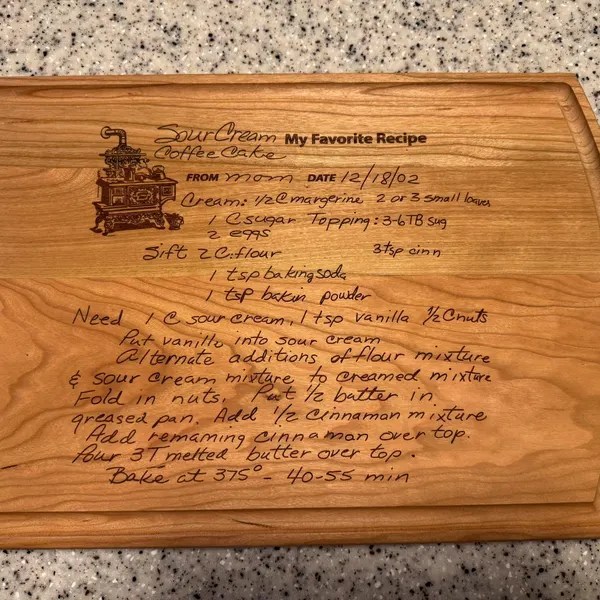 Sour Cream My Favorite Recipe
Coffee Cake
FROM mom DATE 12/18/02
Cream: 1/2 C margerine 2 or 3 small loaves
1 C sugar Topping: 3-6 TB sug
2 eggs
Sift 2 C. flour 3 tsp cinn
1 tsp baking soda
1 tsp bakin powder
Need 1 C sour cream, 1 tsp vanilla 1/2 C nuts
Put vanilla into sour cream
Alternate additions of flour mixture
& sour cream mixture to creamed mixture
Fold in nuts. Put 1/2 batter in
greased pan. Add 1/2 cinnaman mixture
Add remaming cinnaman over top.
Pour 3 T melted butter over top.
Bake at 375° - 40-55 min